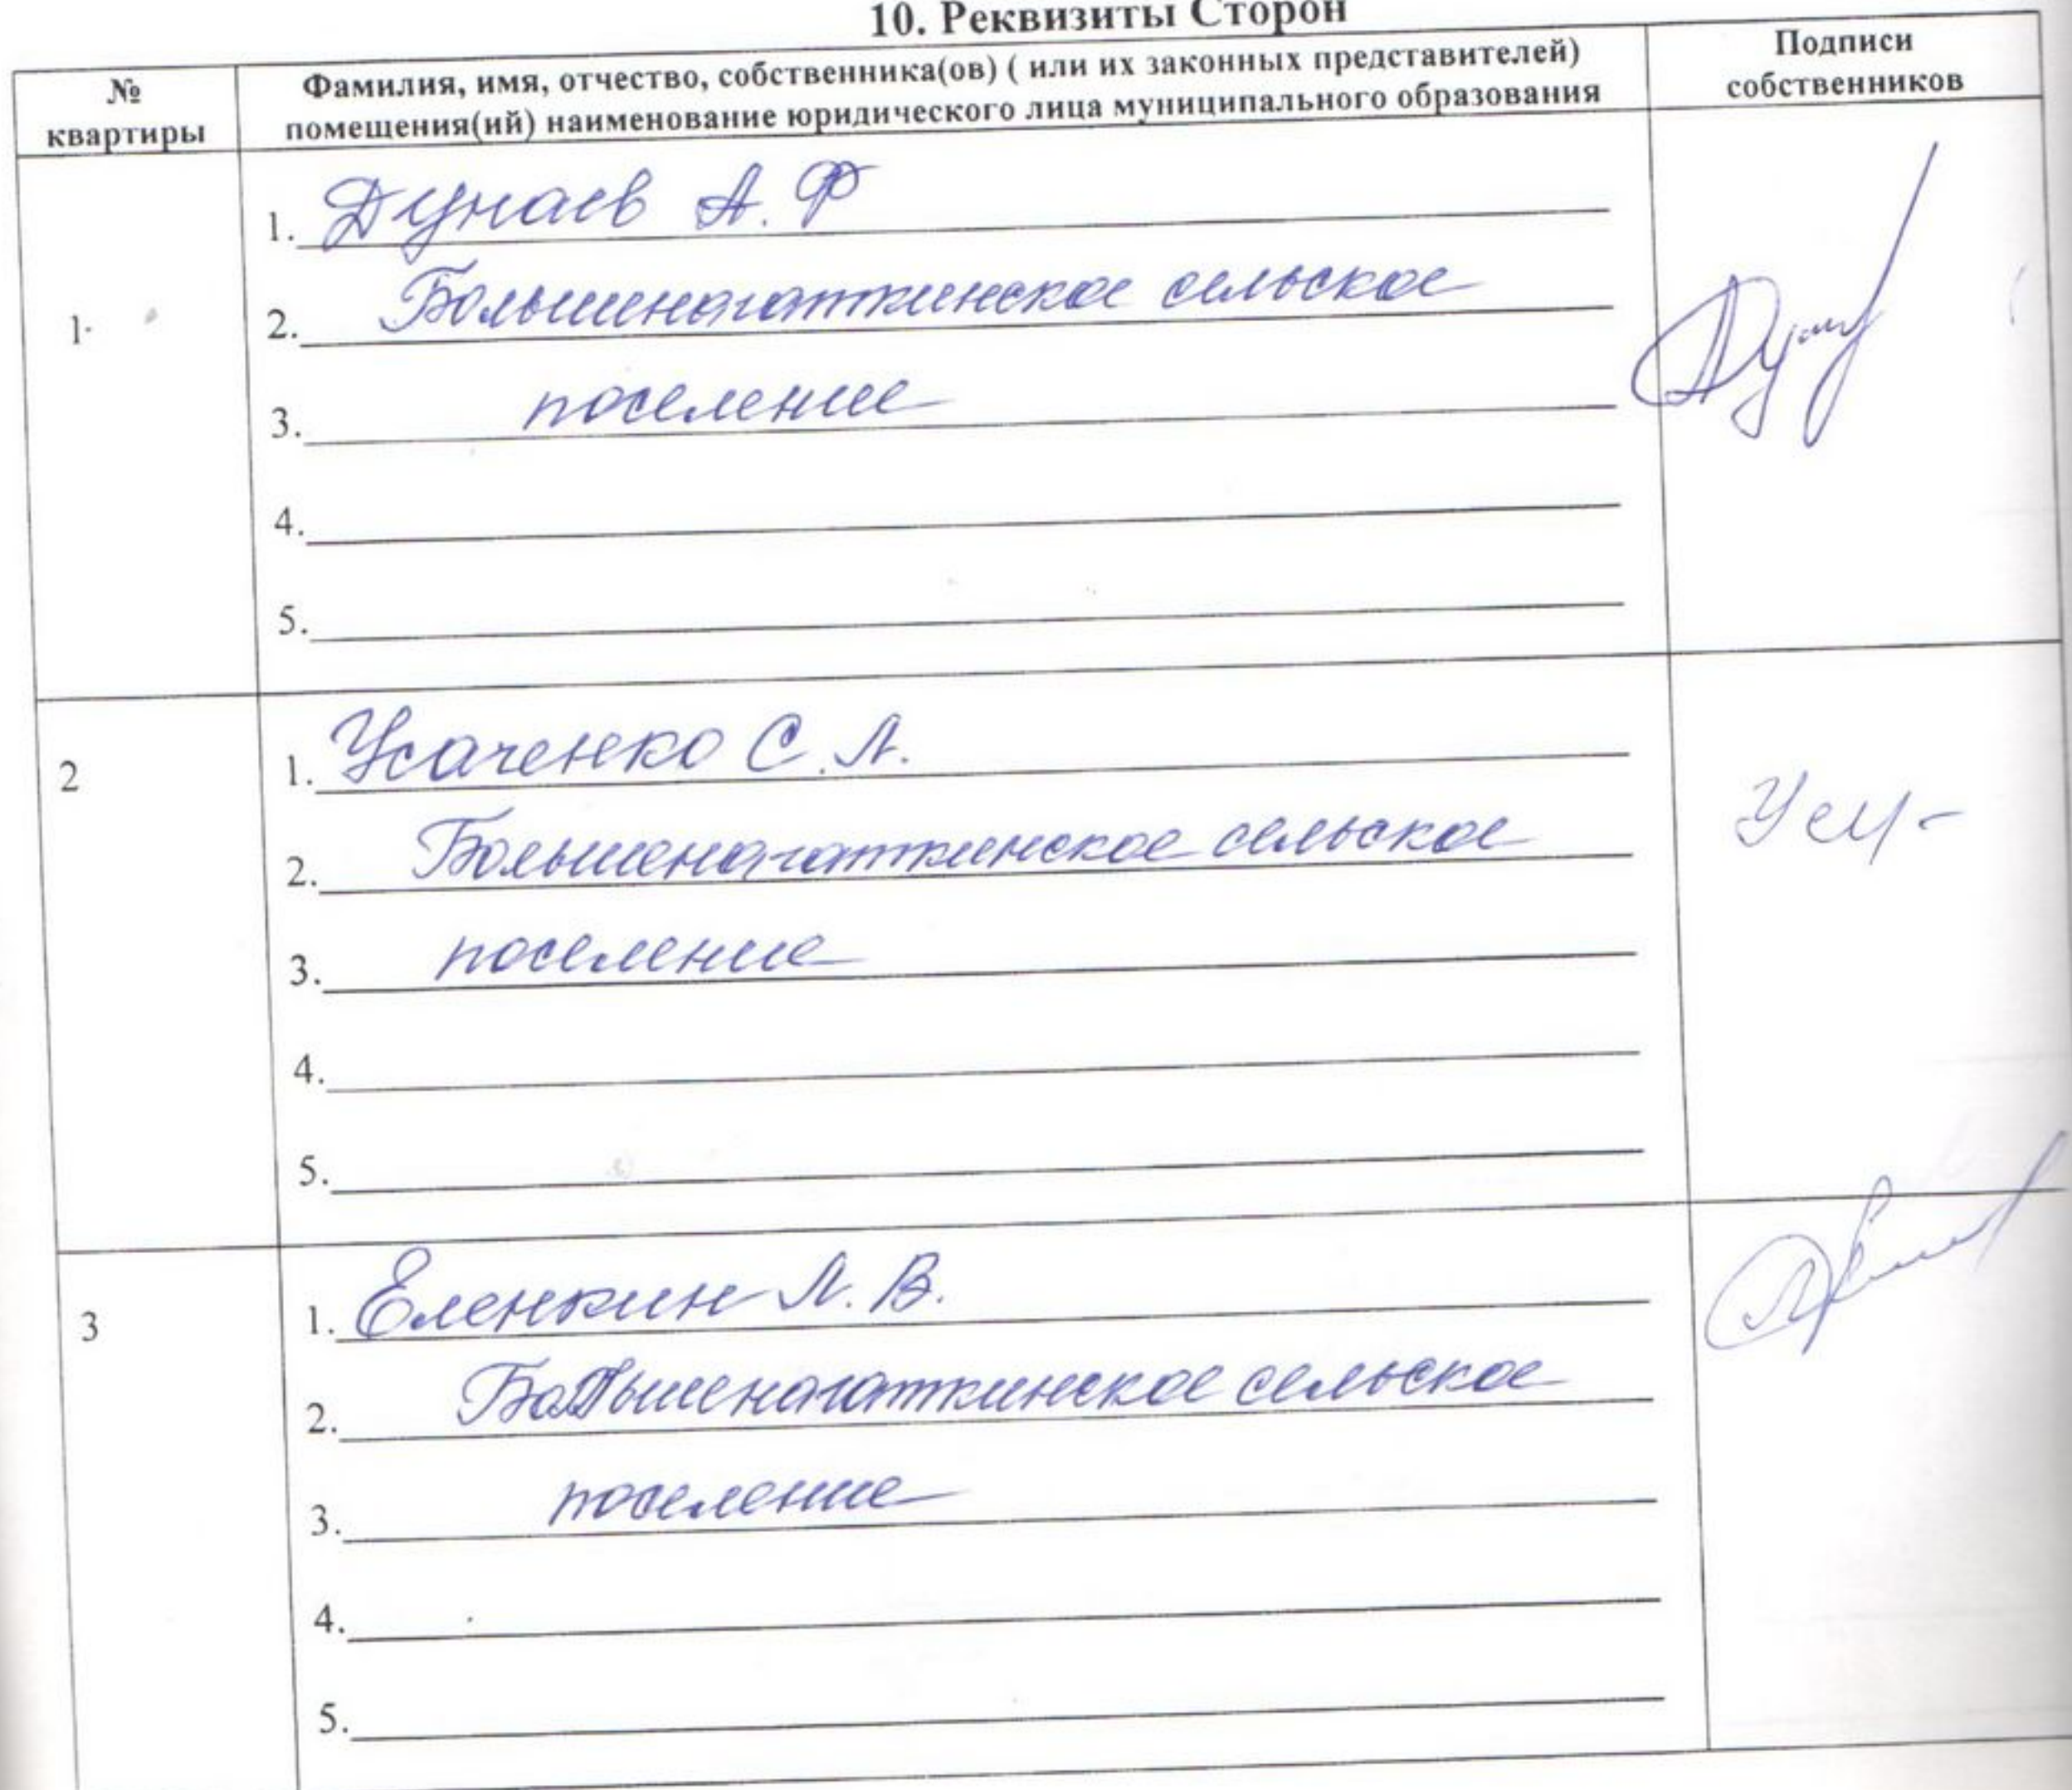 10. Реквизиты Сторон
№ квартиры
Фамилия, имя, отчество, собственника(ов) ( или их законных представителей)
помещения(ий) наименование юридического лица муниципального образования
Подписи
собственников
1.
1. Дунаев А. Ф
2. Большенагаткинское сельское
3. поселение
4.
5.
2
1. Усаченко С. А.
2. Большенагаткинское сельское
3. поселение
4.
5.
3
1. Еленкин А. В.
2. Большенагаткинское сельское
3. поселение
4.
5.